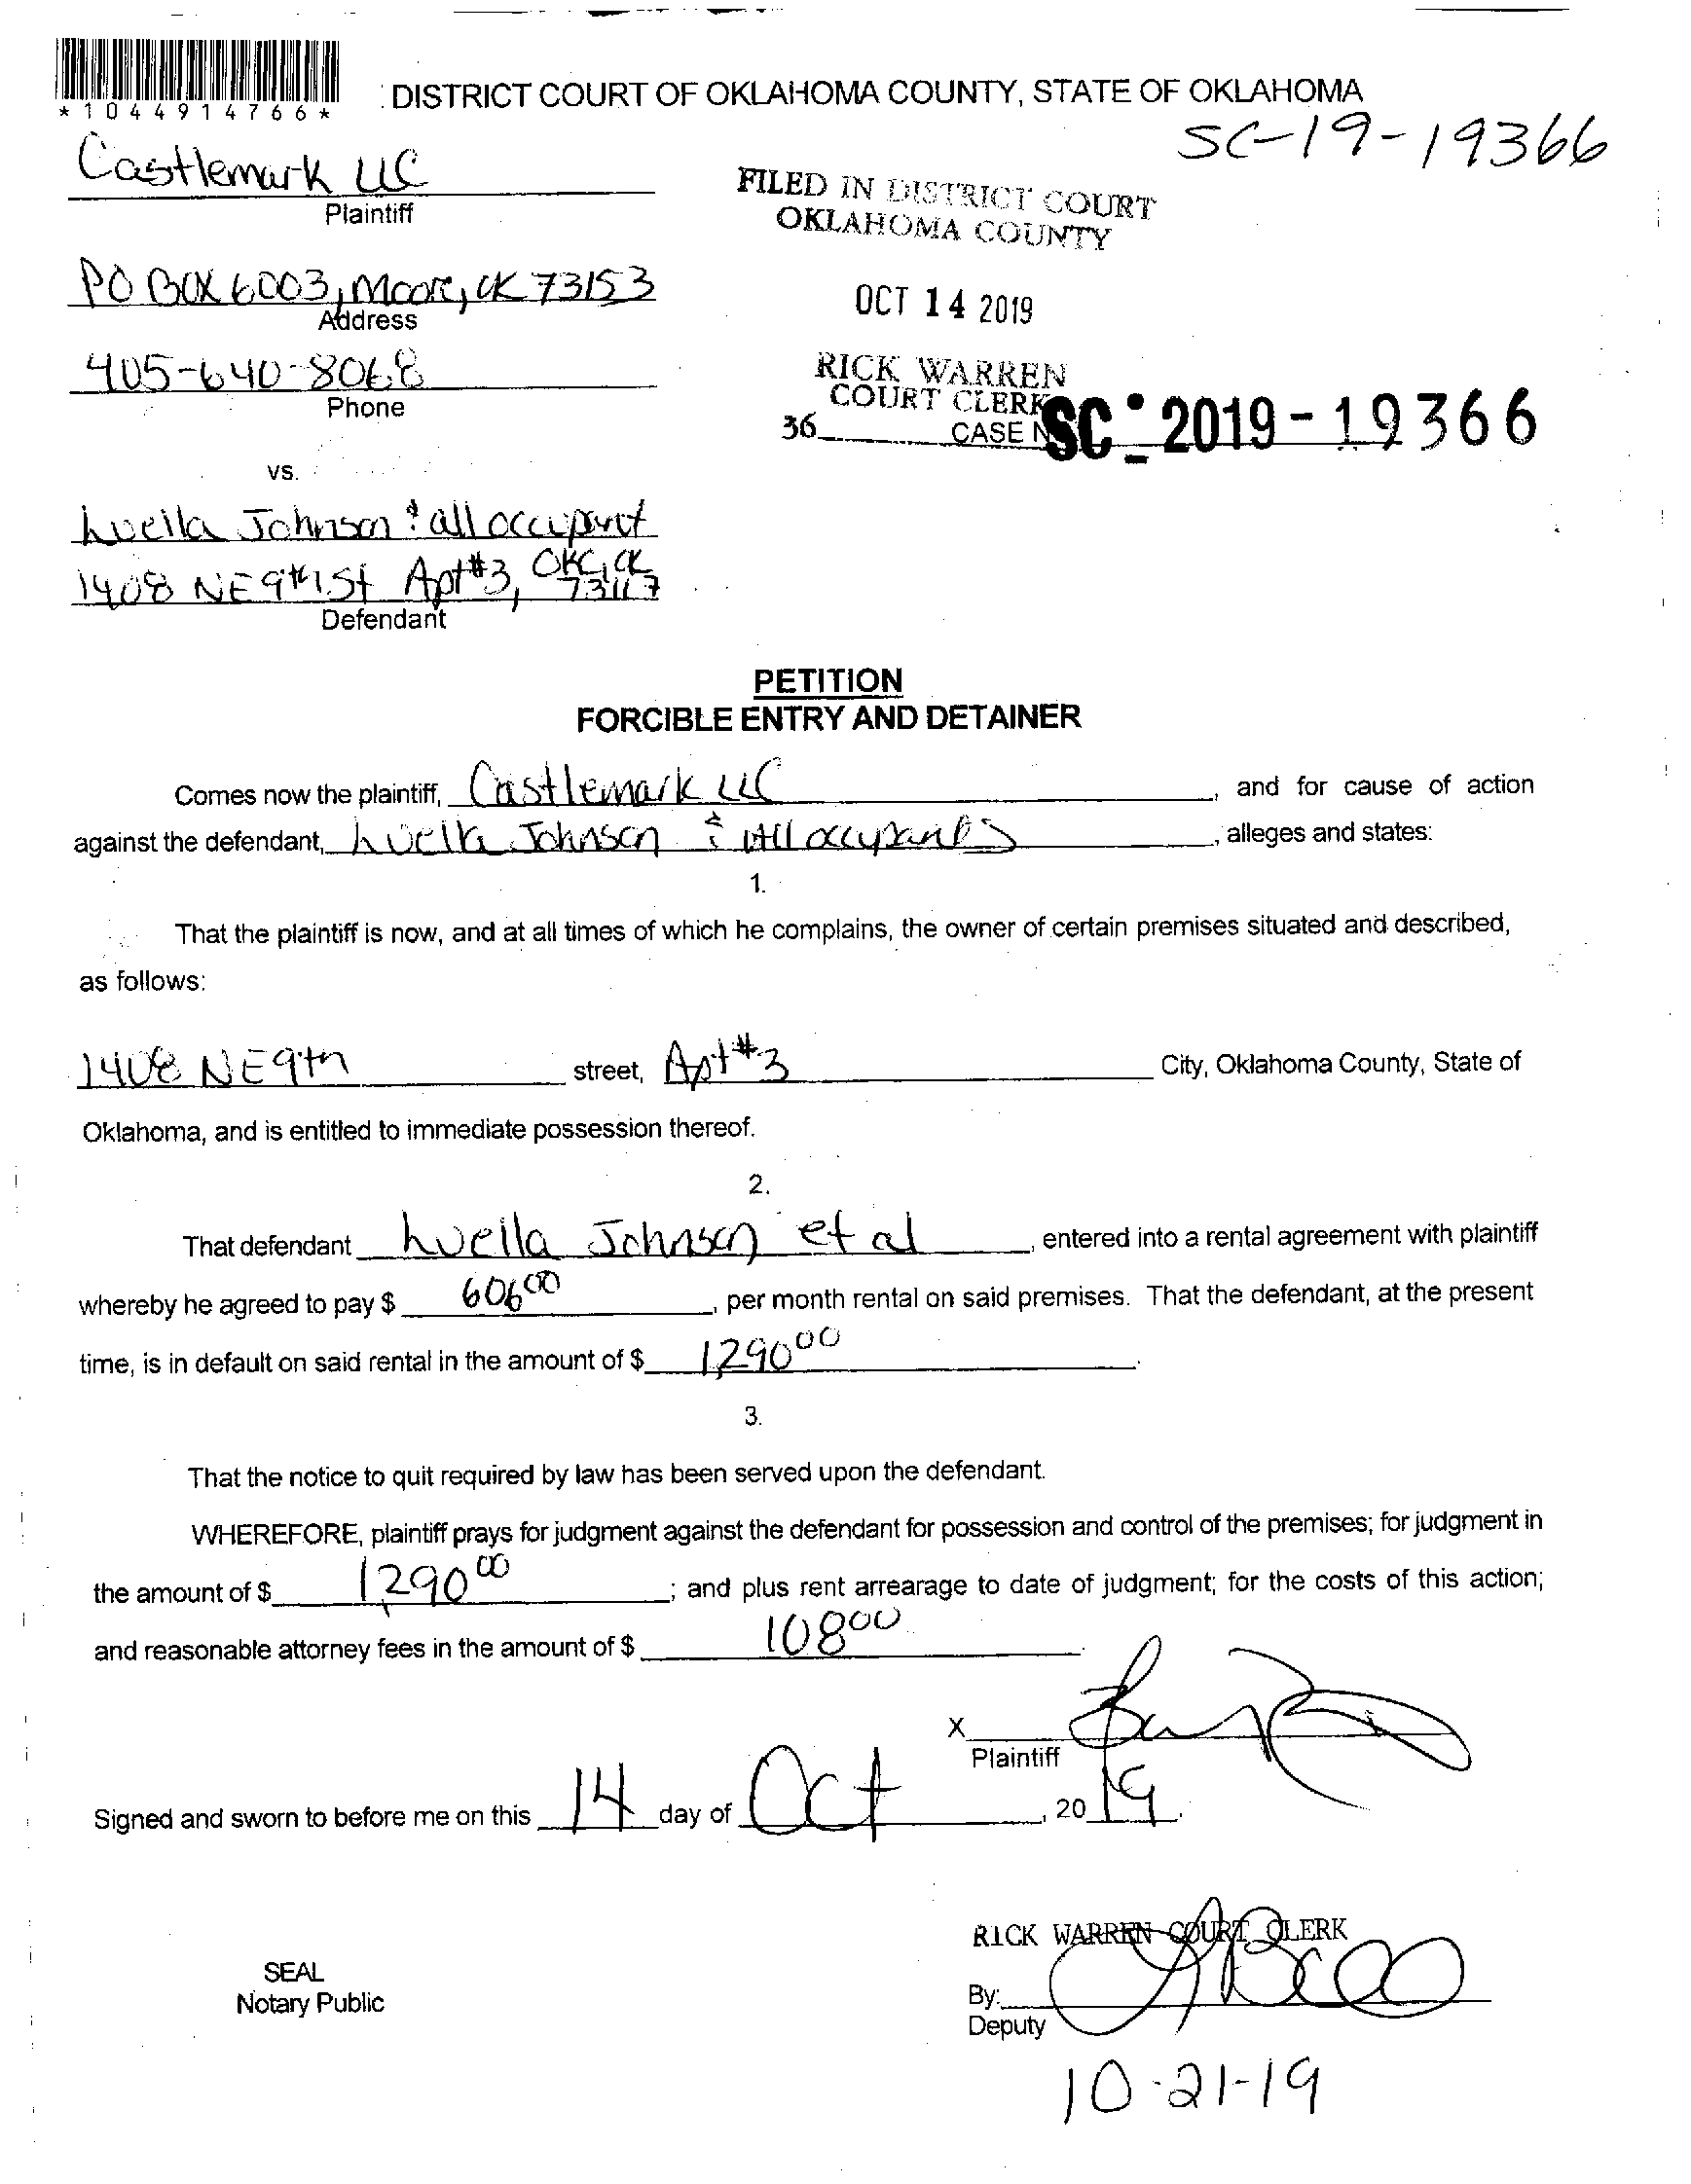 *1044914766*
DISTRICT COURT OF OKLAHOMA COUNTY, STATE OF OKLAHOMA
SC-19-19366
Castlemark LLC
Plaintiff
FILED IN DISTRICT COURT
OKLAHOMA COUNTY
PO BOX 6003, Moore, OK 73153
Address
OCT 14 2019
405-640-8068
Phone
RICK WARREN
COURT CLERK
36
CASE N
SC-2019-19366
vs.
Luella Johnson & all occupant
1408 NE 9th St Apt #3, OKC, OK
73117
Defendant
PETITION
FORCIBLE ENTRY AND DETAINER
Comes now the plaintiff, Castlemark LLC, and for cause of action
against the defendant, Luella Johnson & All occupants, alleges and states:
1.
That the plaintiff is now, and at all times of which he complains, the owner of certain premises situated and described,
as follows:
1408 NE 9th street, Apt #3 City, Oklahoma County, State of
Oklahoma, and is entitled to immediate possession thereof.
2.
That defendant Luella Johnson et al, entered into a rental agreement with plaintiff
whereby he agreed to pay $ 606 00, per month rental on said premises. That the defendant, at the present
time, is in default on said rental in the amount of $ 1,290 00.
3.
That the notice to quit required by law has been served upon the defendant.
WHEREFORE, plaintiff prays for judgment against the defendant for possession and control of the premises; for judgment in
the amount of $ 1,290 00; and plus rent arrearage to date of judgment; for the costs of this action;
and reasonable attorney fees in the amount of $ 108 00
X
Plaintiff
Signed and sworn to before me on this 14 day of Oct, 20 19.
RICK WARREN COURT CLERK
SEAL
Notary Public
By:
Deputy
10-21-19